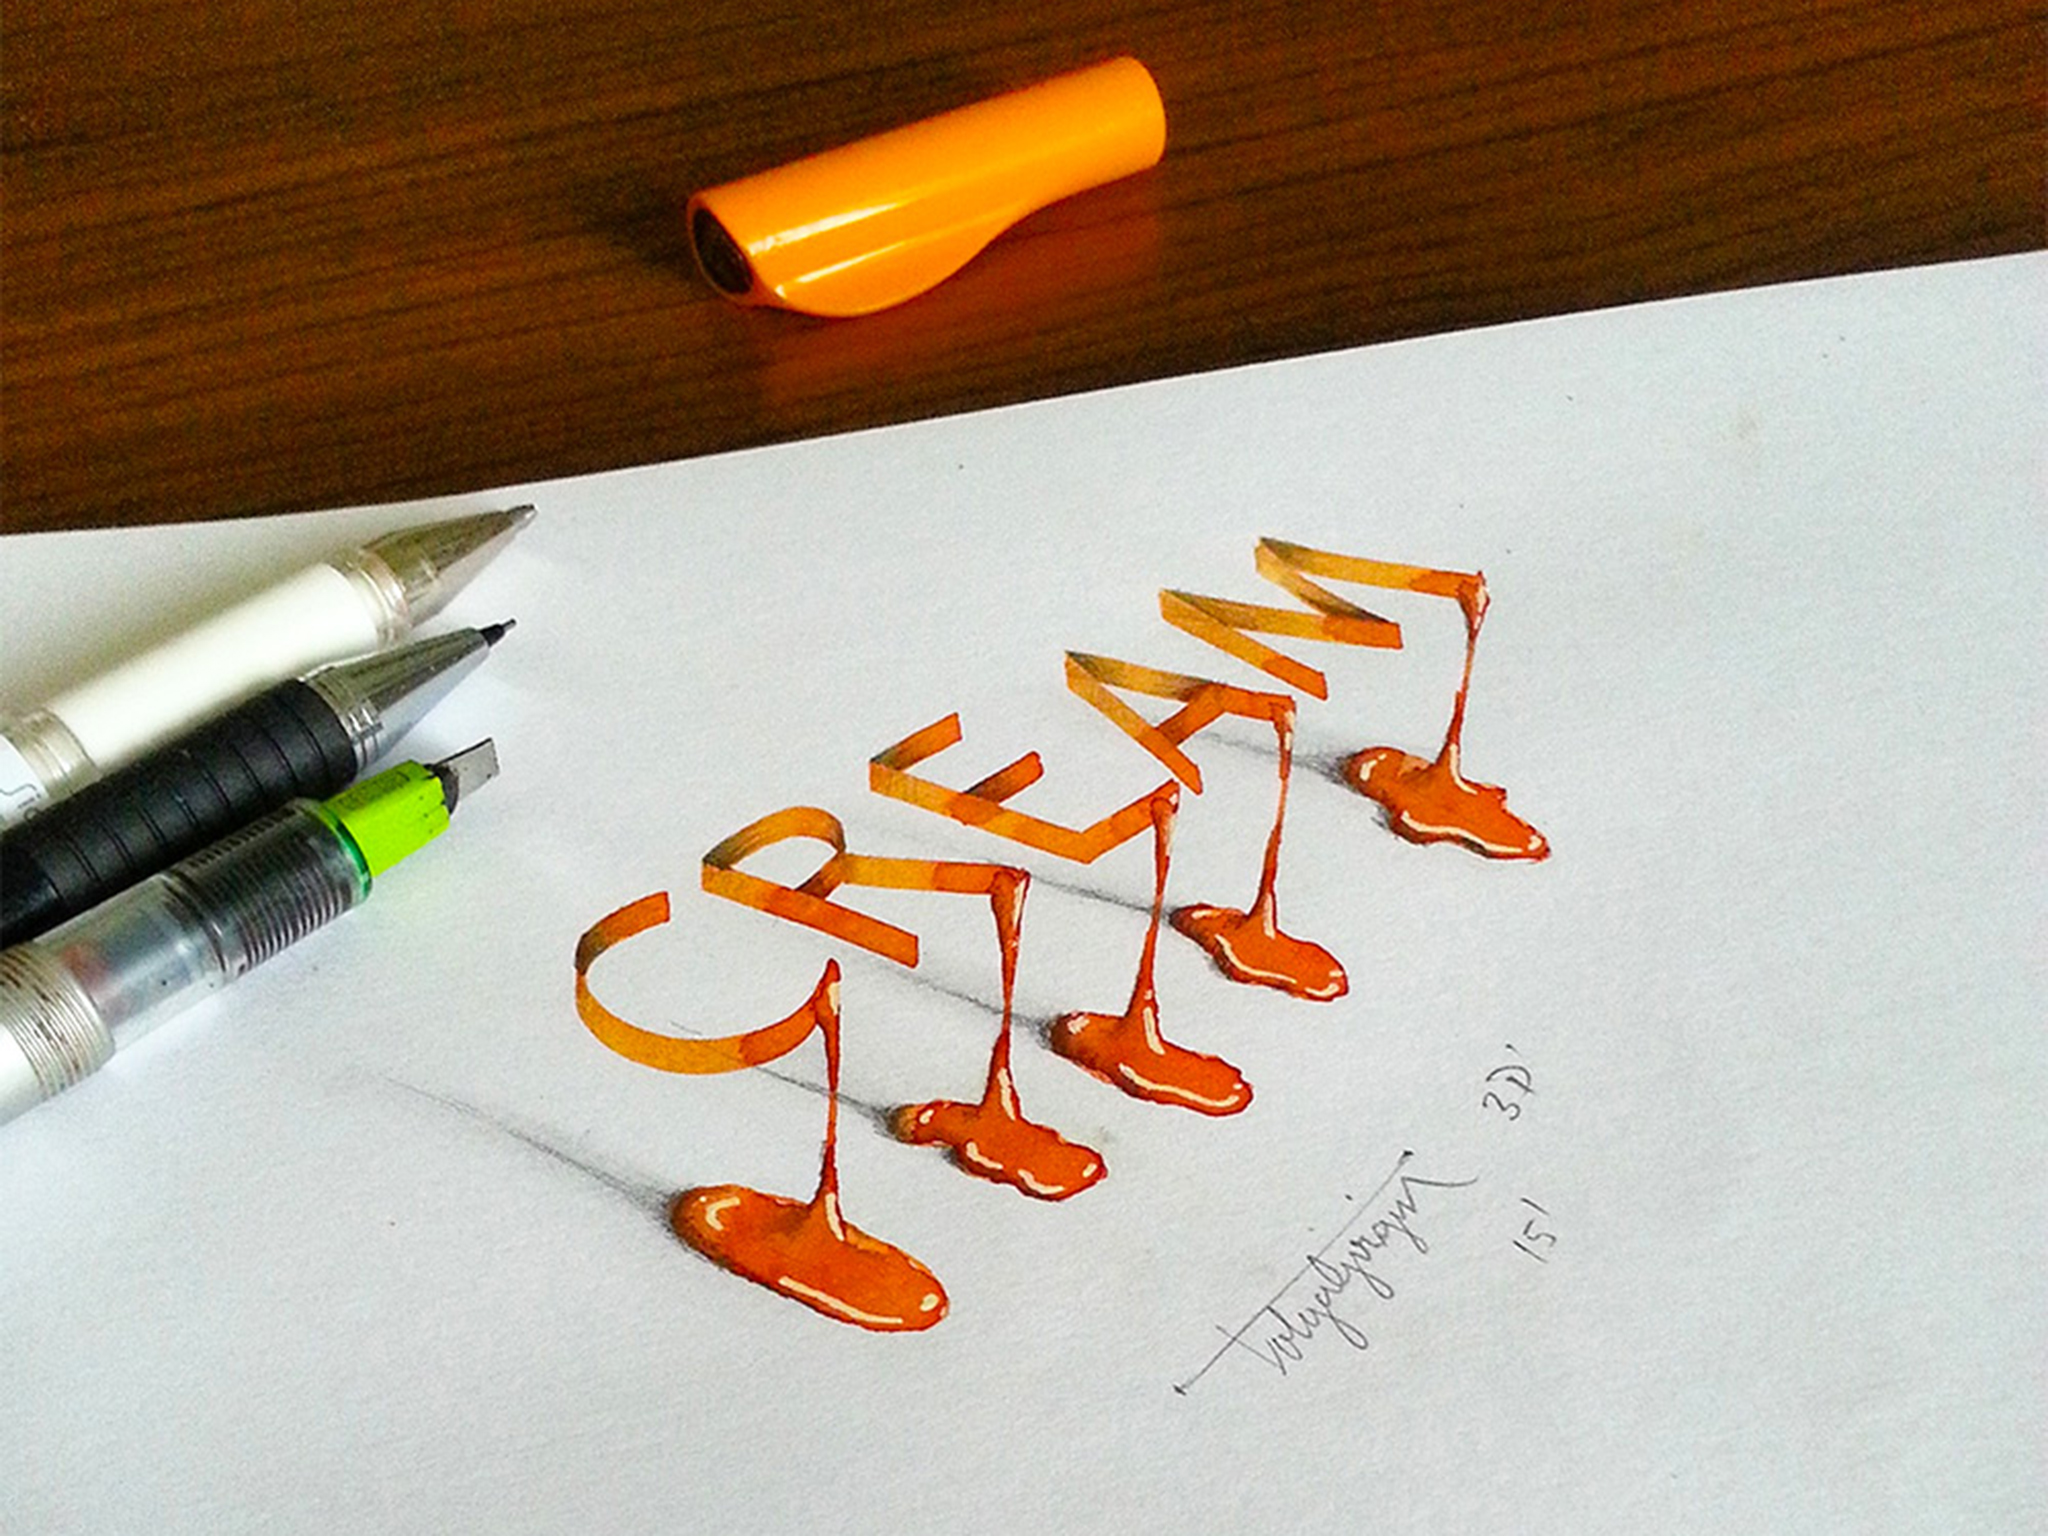 CREAM
tolgagirgin 3D'
15'